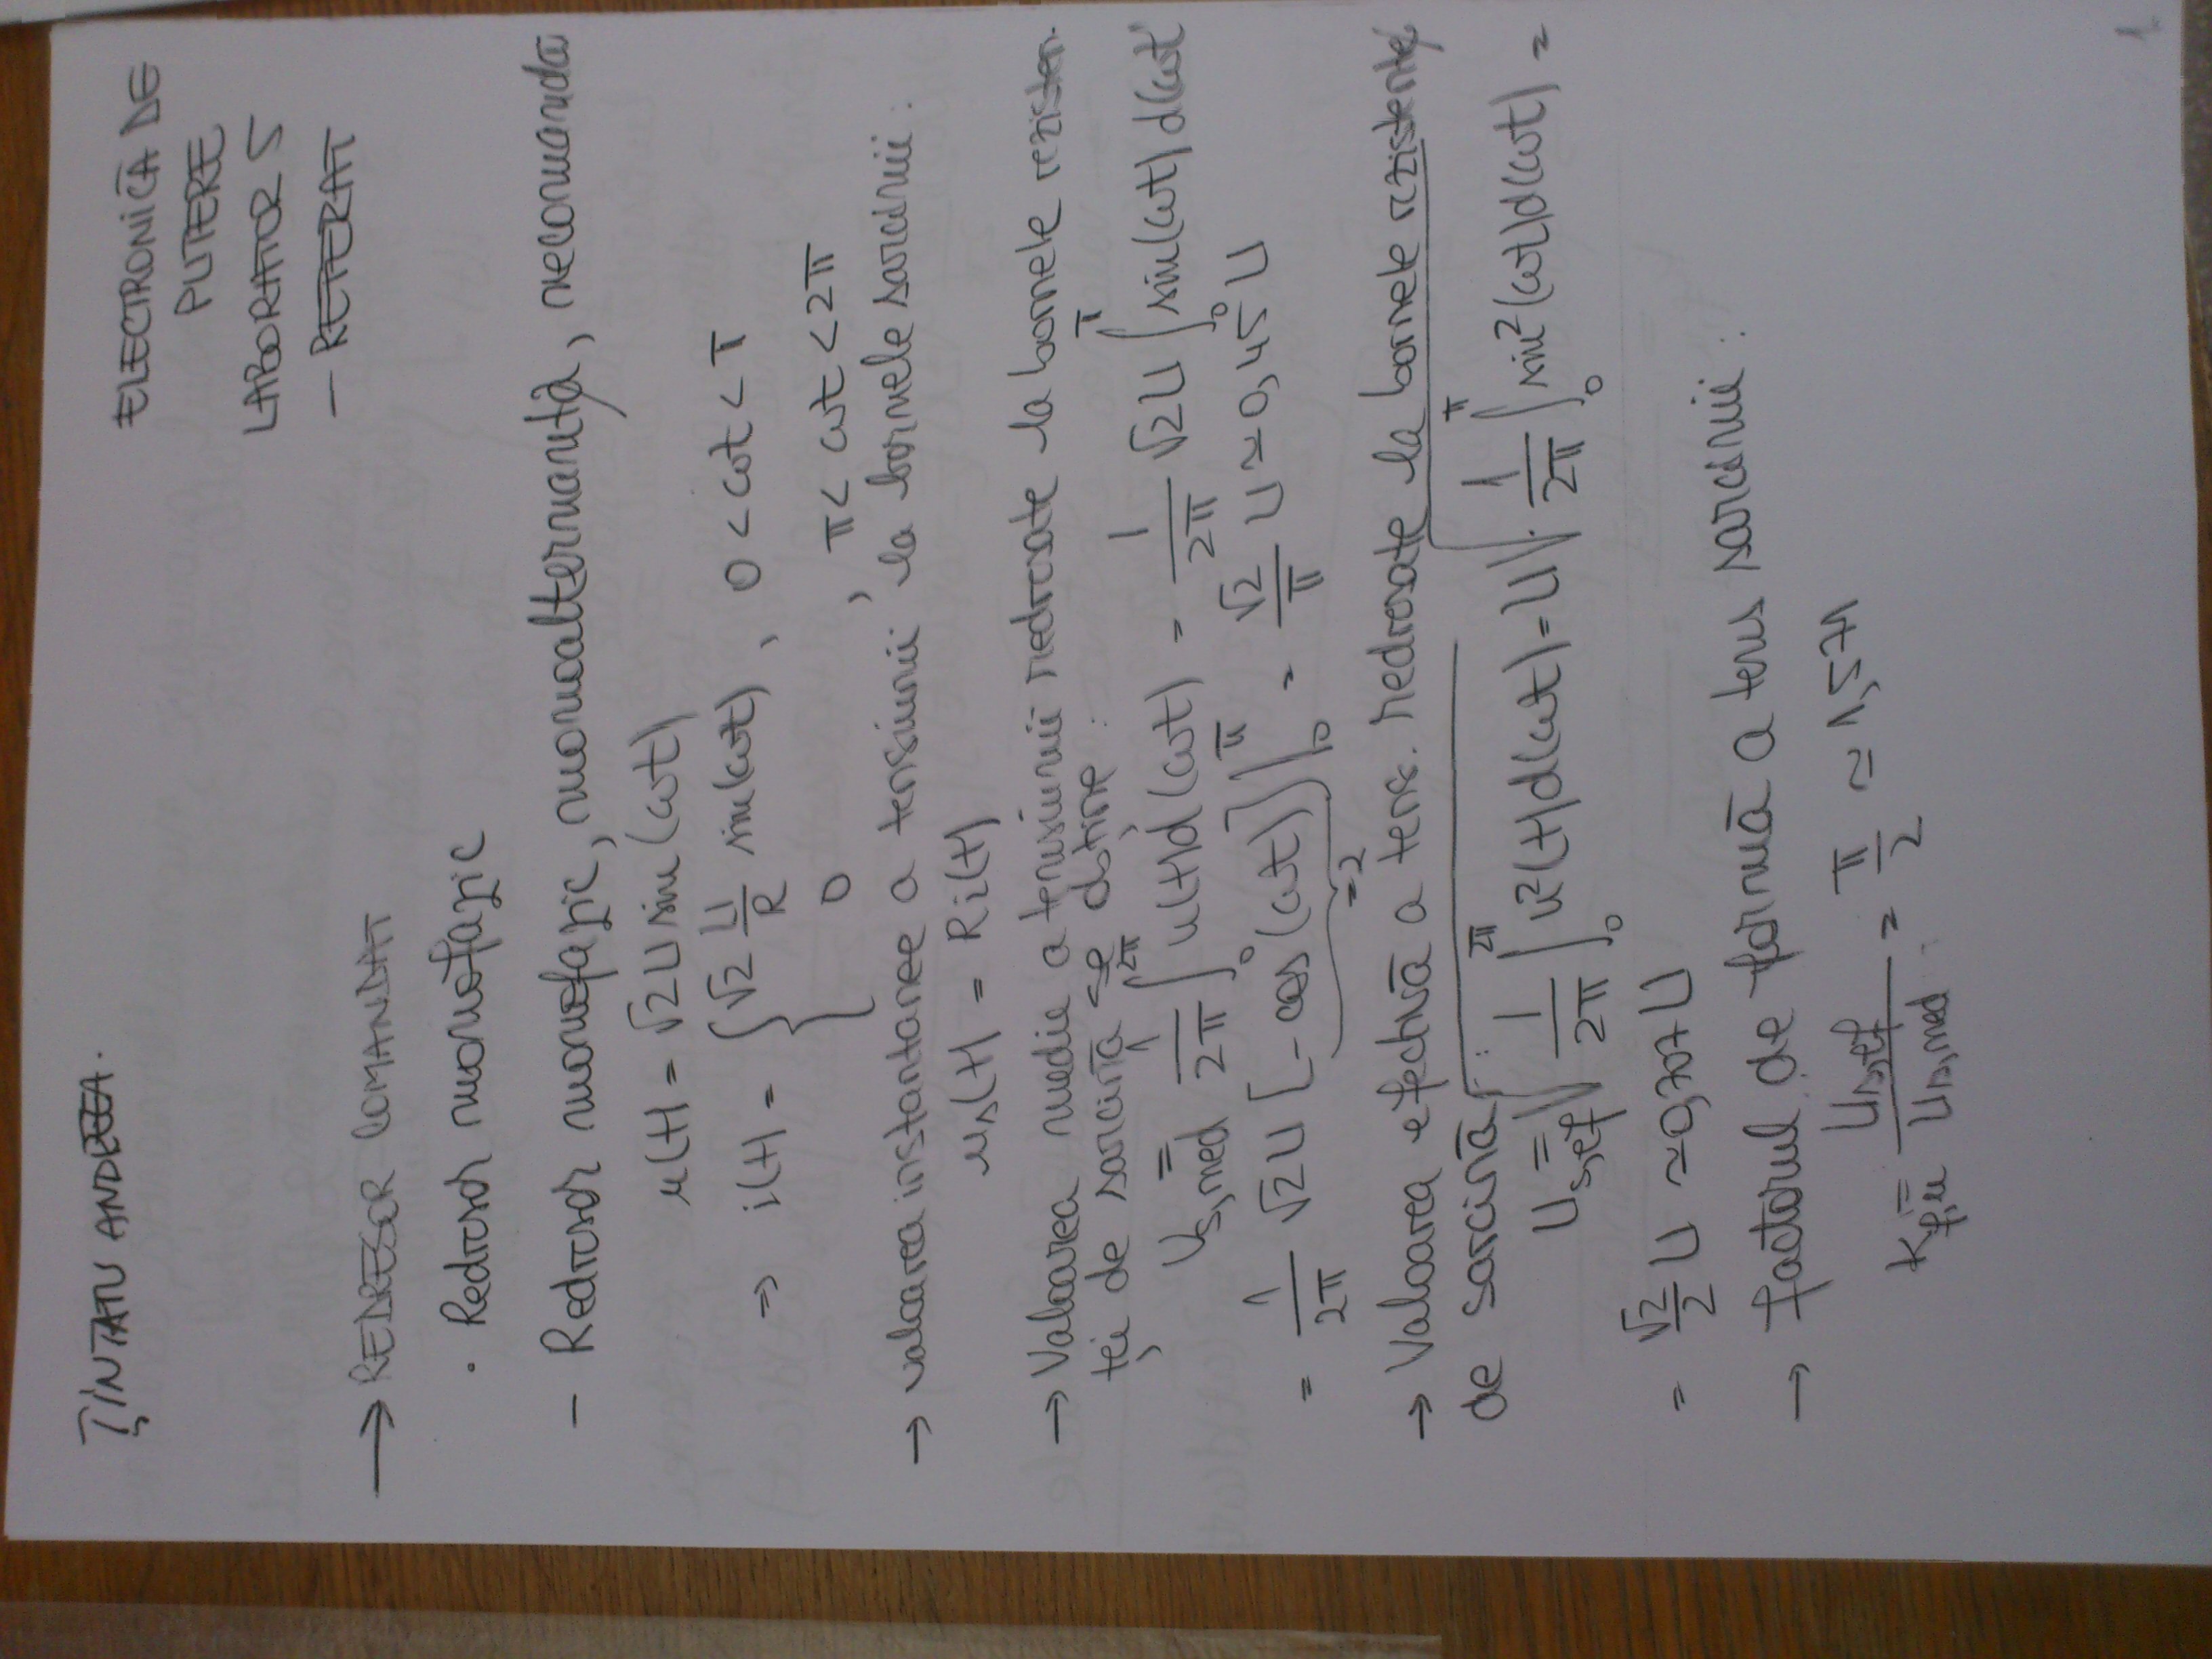 ȚÎNTATU ANDREEA.
ELECTRONICĂ DE
PUTERE
LABORATOR 5
- REFERAT
→ REDRESOR COMANDAT
• Redresor monofazic
- Redresor monofazic, monoalternanță, necomandat
u(t) = √2 U sin(ωt)
⇒ i(t) = { √2 U/R sin(ωt), 0 < ωt < π
0 , π < ωt < 2π
→ valoarea instantanee a tensiunii la bornele sarcinii:
us(t) = Ri(t)
→ Valoarea medie a tensiunii redresate la bornele rezisten-
ței de sarcină se obține:
Us,med = 1/2π ∫₀^2π u(t)d(ωt) = 1/2π √2U ∫₀^π sin(ωt)d(ωt)
= 1/2π √2U [-cos(ωt)]|₀^π = √2/π U ≃ 0,45 U
=2
→ Valoarea efectivă a tens. redresate la bornele rezistenței
de sarcină:
Us,ef = √(1/2π ∫₀^2π u²(t)d(ωt)) = U√(1/2π ∫₀^π sin²(ωt)d(ωt)) =
= √2/2 U ≃ 0,707 U
→ factorul de formă a tens sarcinii:
Kf,u = Us,ef / Us,med = π/2 ≃ 1,571
1